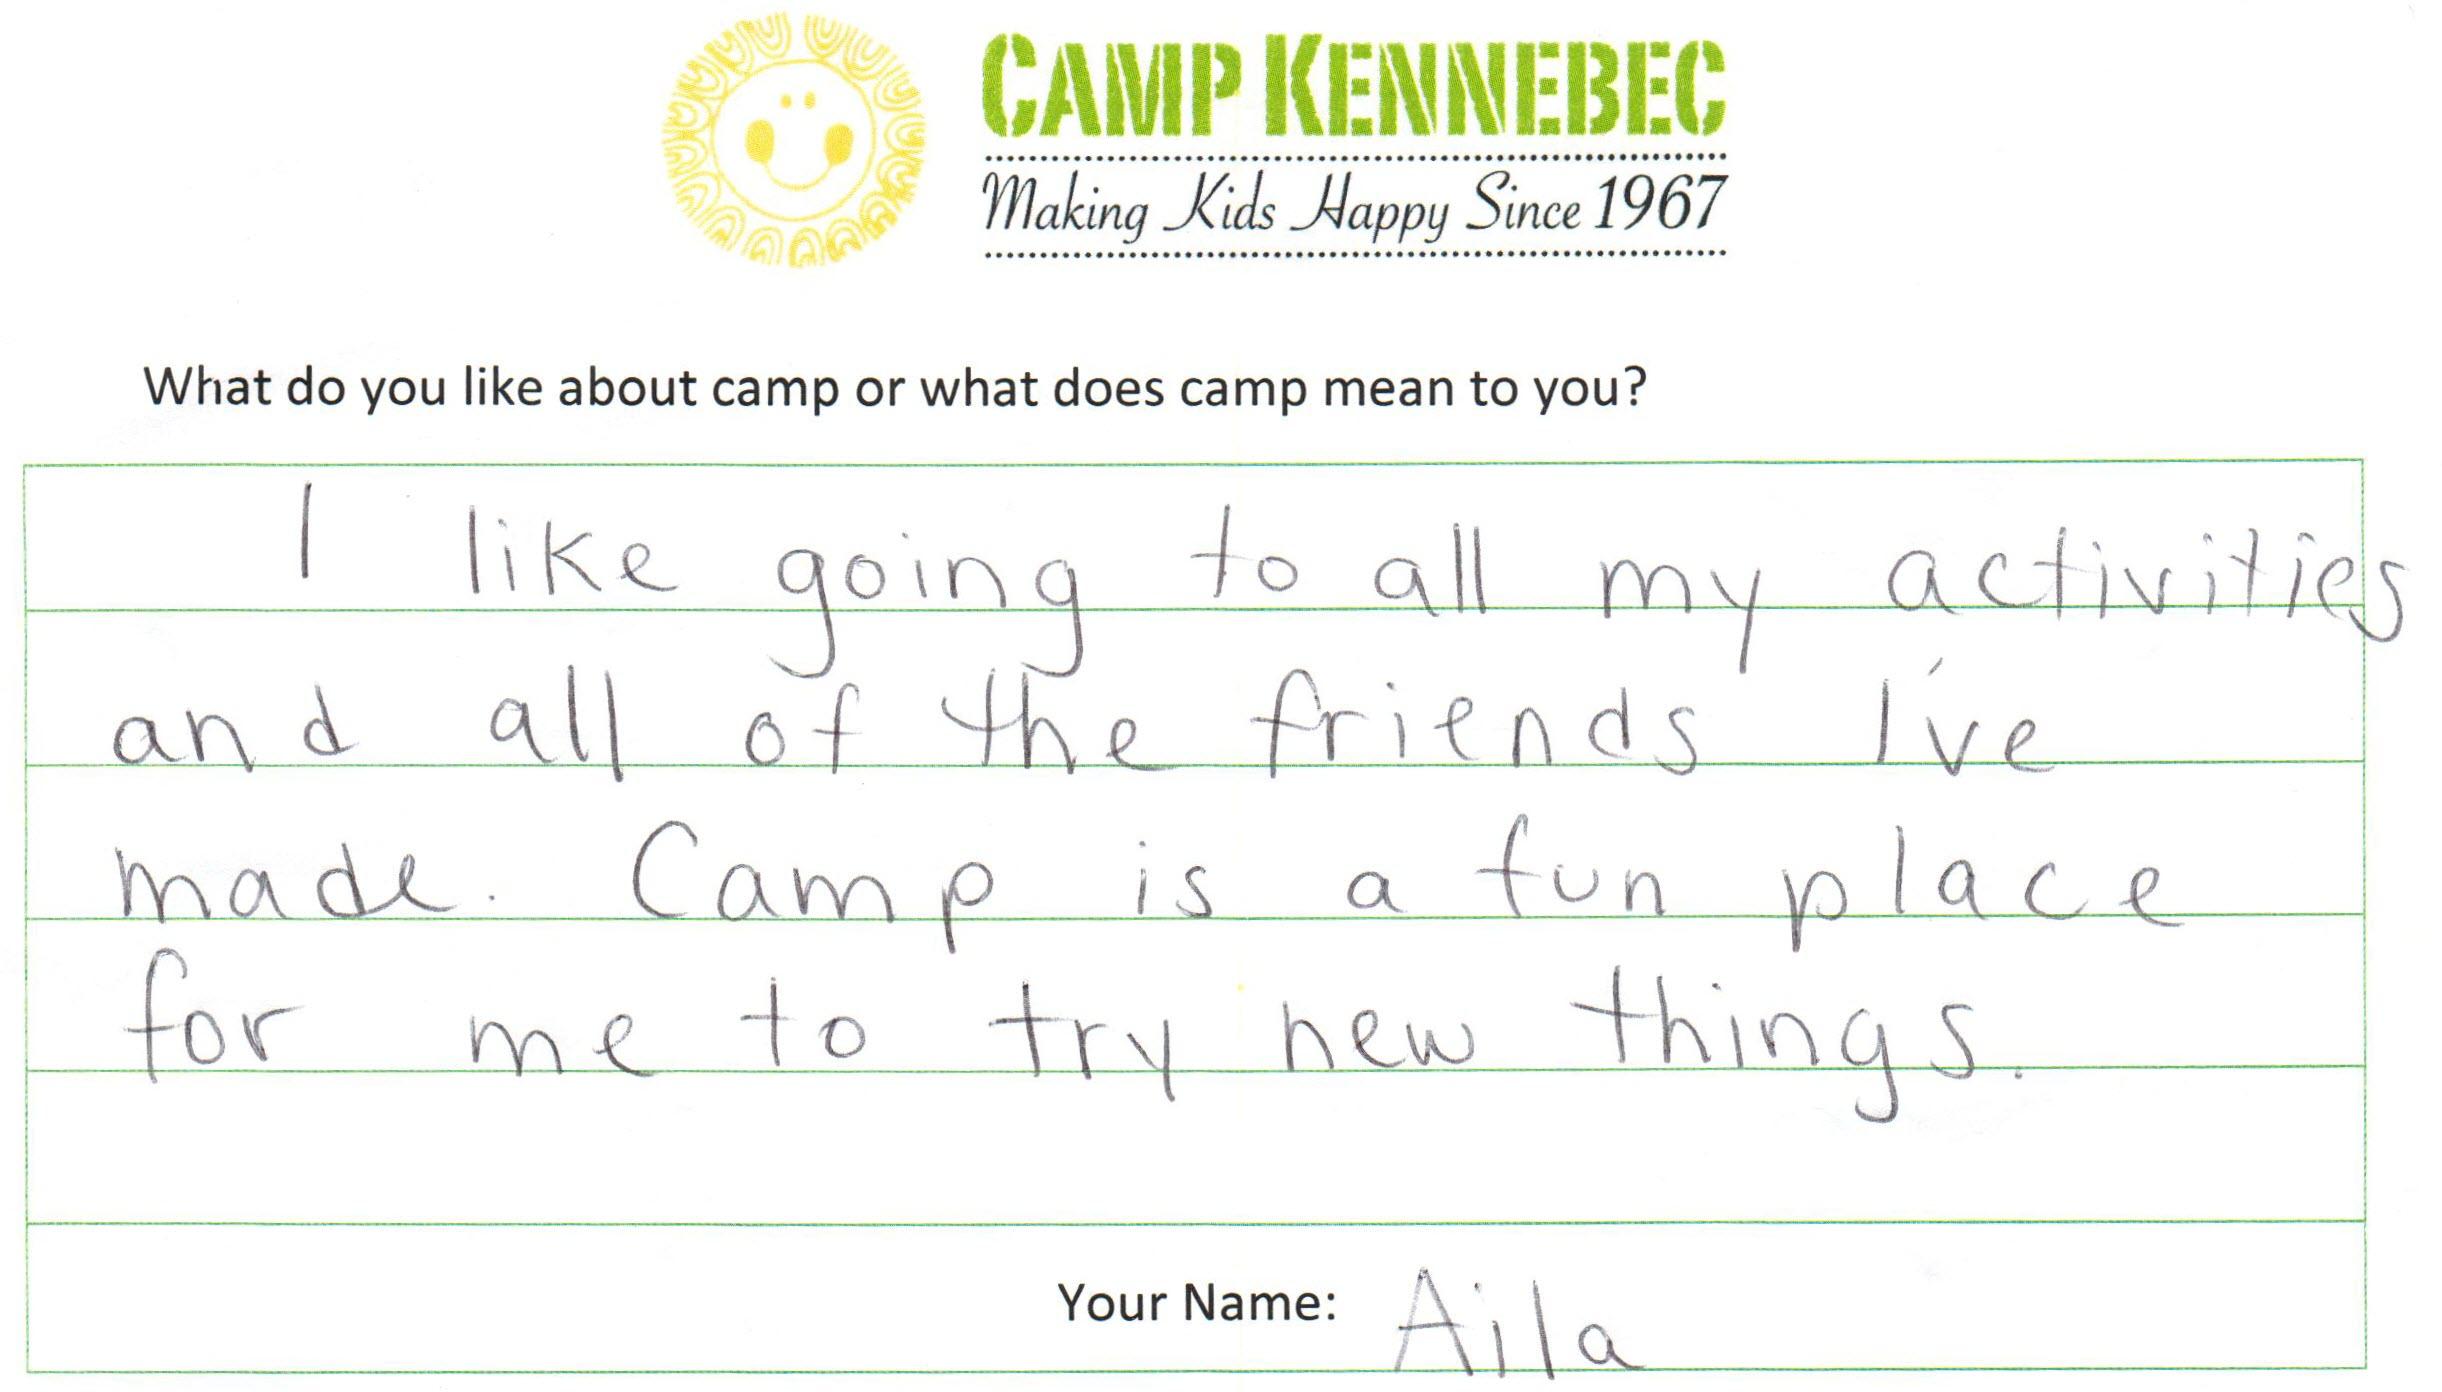 CAMP KENNEBEC
Making Kids Happy Since 1967
What do you like about camp or what does camp mean to you?
I like going to all my activities
and all of the friends I've
made. Camp is a fun place
for me to try new things.
Your Name: Aila